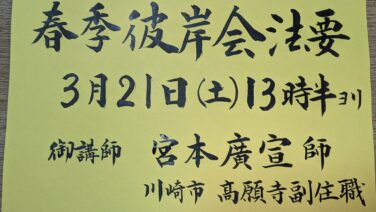 春季彼岸会法要
3月21日(土)13時半ヨリ
御講師 宮本廣宣師
川崎市 高願寺副住職